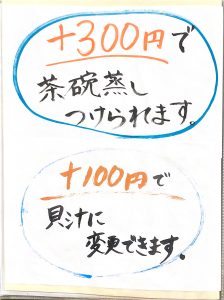 +300円で
茶碗蒸し
つけられます。
+100円で
貝汁に
変更できます。